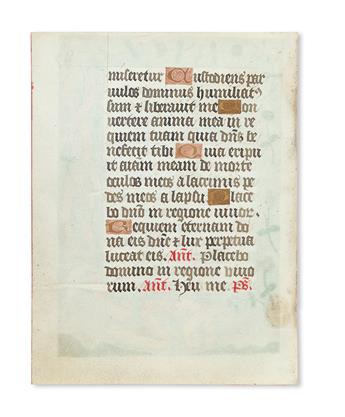 miseretur Custodiens par
uulos dominus humiliat9
sum & liberauit me Con
uertere anima mea in re
quiem tuam quia dn̄s be
nefecit tibi Quia eripu
it aīam meam de morte
oculos meos a lacrimis pe
des meos a lapsu Place
bo dn̄o in regione uiuor.
Requiem eternam do
na eis dn̄e & lux perpetua
luceat eis. Ant. Placebo
domino in regione uiuo
rum. Ant. Heu me. Ps.